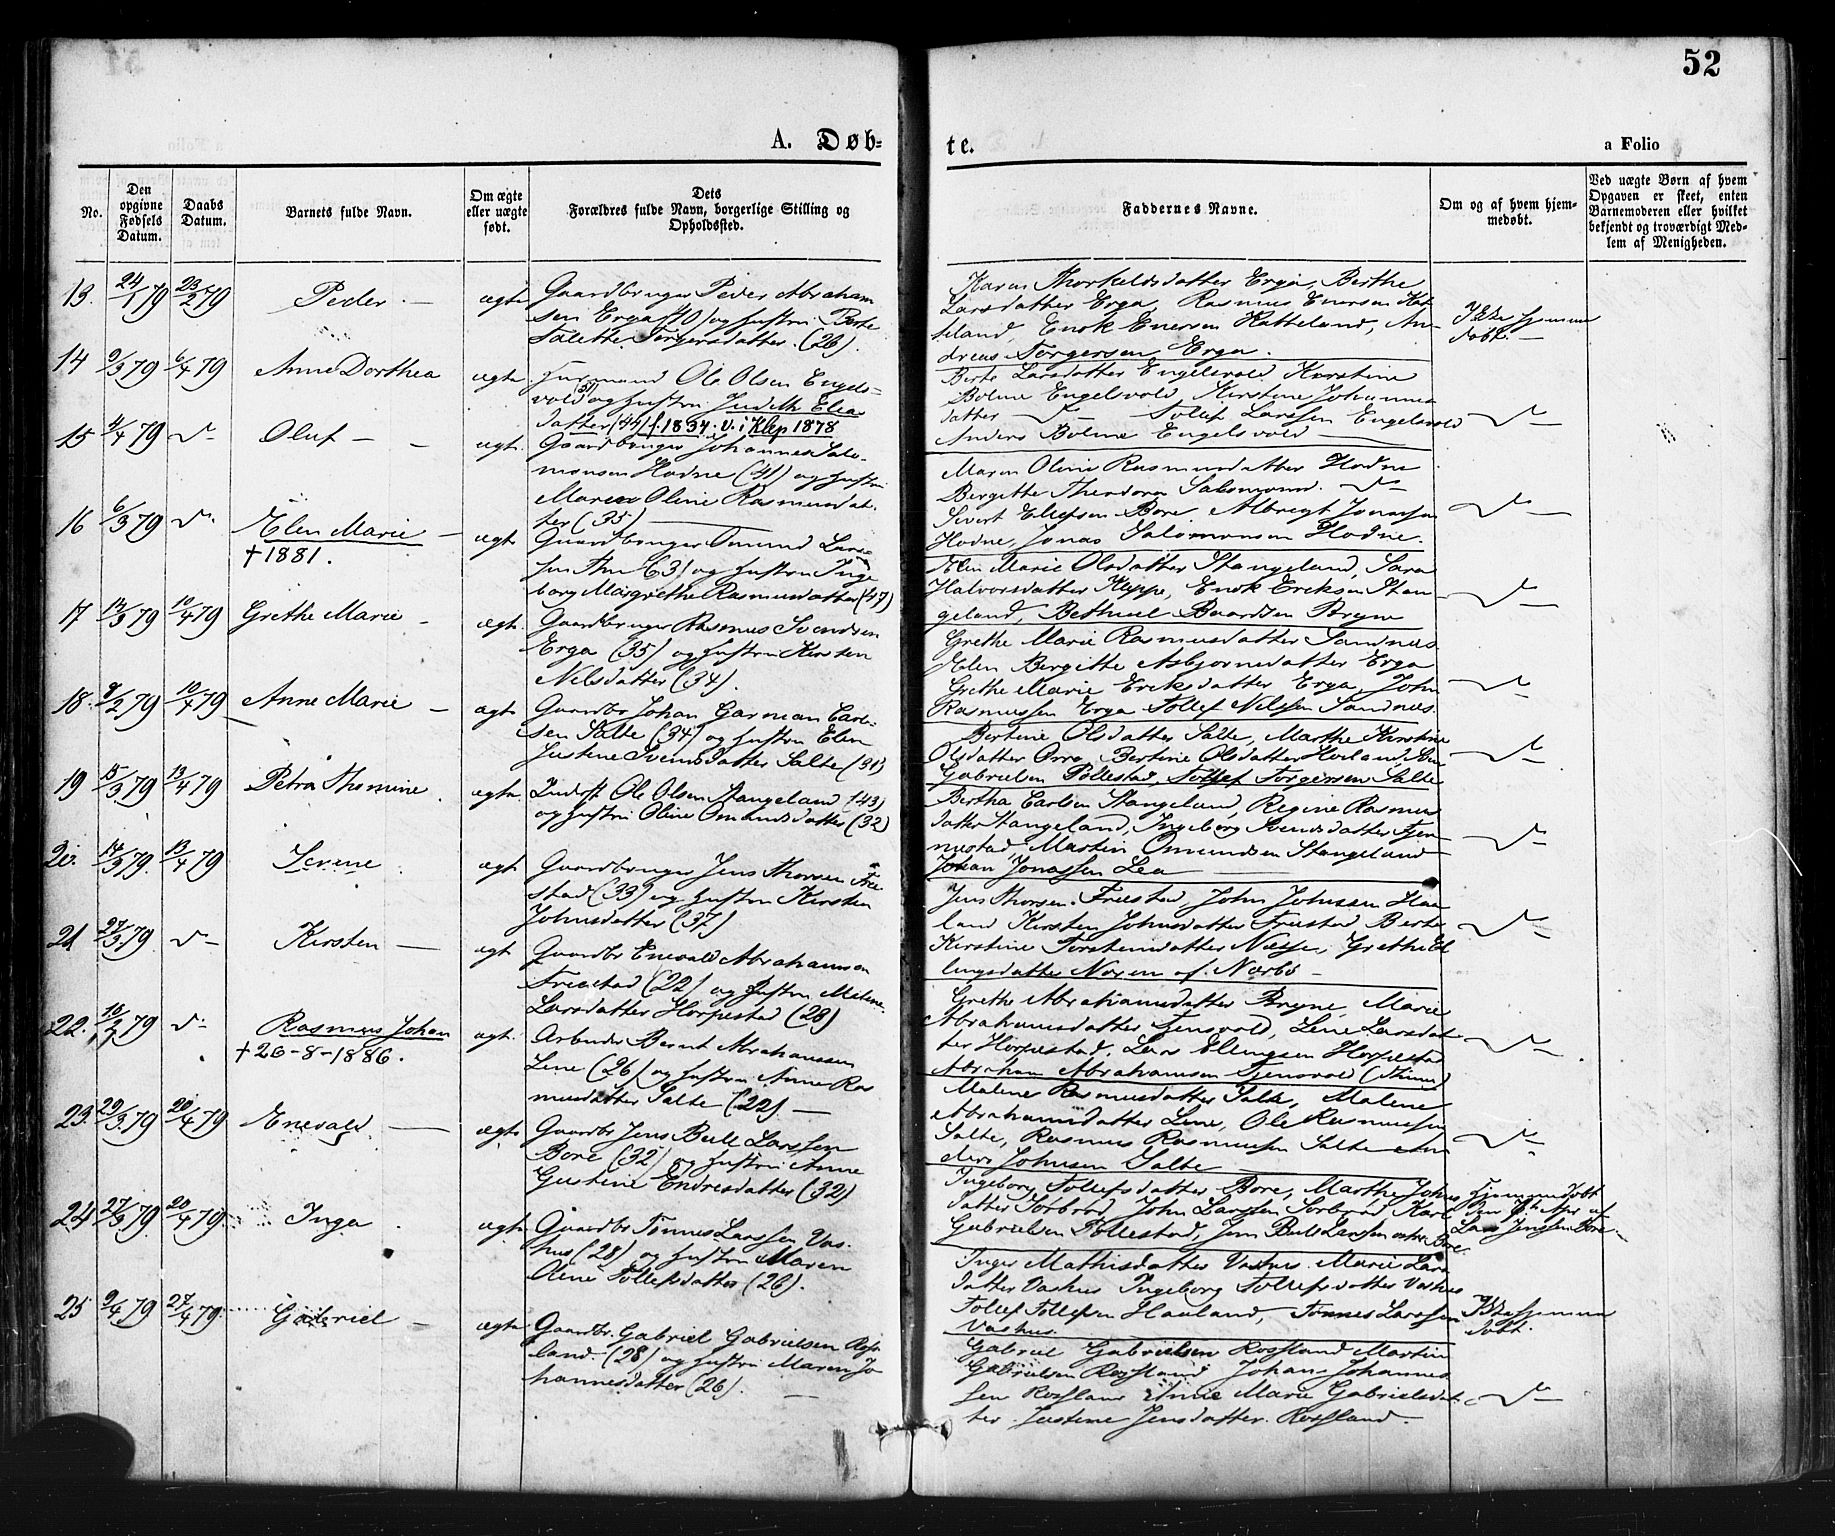 52
A. Døb-
te.
a Folio
No.
Den opgivne Fødsels Datum.
Daabs Datum.
Barnets fulde Navn.
Om ægte eller uægte født.
Dets Forældres fulde Navn, borgerlige Stilling og Opholdssted.
Faddernes Navne.
Om og af hvem hjem-
medøbt.
Ved uægte Børn af hvem
Opgaven er skeet, enten
Barnemoderen eller hvilket
bekjendt og troværdigt Med-
lem af Menigheden.
13. 24/1 79 23/2 79 Peder. — ægte
Gaardbruger Peder Abraham
sen Erga (40) og Hustru Berte
Talette Torgersdatter. (26).
Karen Thorkeldsdatter Erga, Berthe
Larsdatter Erga, Rasmus Enersen Kat
teland, Enok Enersen Katteland, An-
dreas Torgersen Erga.
Ikke hjemme
døbt. —
14 9/3 79 6/4 79 Anne Dorthea ægte
Furmand Ole Olsen Engels-
vold og Hustru Judith Elias
datter (44) f. 1834. V. i Klep 1878
Berte Larsdatter Engelsvold Kirstine
Bolme Engelsvold, Kirstine Johannes
datter — Tollef Larssen Engelsvold
Anders Bolme Engelsvold —
15 4/4 79 Oluf — - ægt.
Gaardbruger Johannes Salo-
monsen Hodne (41) og Hustru
Maren Oline Rasmusdat-
ter (35) —
Maren Oline Rasmusdatter Hodne
Bergitte Theodora Salomons.
Sivert Ellefsen Bore Albregt Jonassen
Hodne, Jonas Salomonsen Hodne.
16 6/3 79 Elen Marie — ægt.
† 1881.
Gaardbruger Omund Lars
sen (63) og Hustru Inge
borg Margrethe Rasmusdatter (47)
Elen Marie Olsdatter Stangeland, Sara
Halvorsdatter Kleppe, Enok Eriksen Stan
geland, Bethuel Baardsen Bryne
17 14/3 79 10/4 79 Grethe Marie - ægt.
Gaardbruger Rasmus Svendsen
Erga (35) og Hustru Kirsten
Nilsdatter (34).
Grethe Marie Rasmusdatter Sandnes
Elen Bergitte Asbjørnsdatter Erga
Grethe Marie Eriksdatter Erga, John
Rasmussen Erga Tollef Nilssen Sandnes.
18. 8/2 79 10/4 79 Anne Marie — ægte
Gaardbr Johan Garman Carl-
sen Salte (34) og Hustru Elen
Justine Svendsdatter Salte (31)
Bertine Olsdatter Salte, Marthe Kirstine
Olsdatter Orre, Bertine Olsdatter Hovland,
Gabrielsen Pollestad, Tollef Torgersen Salte
19 15/3 79 13/4 79 Petra Thomine. ægte
Inderst Ole Olsen Stangeland (43)
og Hustru Oline Omundsdatter (32)
Bertha Carlsen Stangeland, Regine Rasmus
datter Stangeland, Ingeborg Svendsdatter Tjen
nestad, Martin Omundsen Stangeland
Johan Jonassen Lea —
20. 14/3 79. 13/4 79 Serine ægt
Gaardbruger Jens Thorsen Frie
stad (33) og Hustru Kirsten
Johnsdatter (37)
Jens Thorsen Friestad, John Johnsen Haa
land Kirsten Johnsdatter Friestad Berte
Kirstine Torstensdatter Næsse, Grethe El
lingsdatter Noren af Nærbø —
21 27/3 79. Kirsten — ægt
Gaardbr Enevald Abrahamsen
Friestad (22) og Hustru Malene
Larsdatter Horpestad (28)
Grethe Abrahamsdatter Bryne, Marie
Abrahamsdatter Tjensvold, Lene Larsdat
ter Horpestad, Lars Ellingsen Horpestad
Abraham Abrahamsen Tjensvold (Thime)
22. 10/2 79 Rasmus Johan ægt.
† 26-8-1886.
Arbeider Bernt Abrahamsen
Line (26) og Hustru Anne Ras
musdatter Salte (22). —
Malene Rasmusdatter Salte, Malene
Abrahamsdatter Line, Ole Rasmussen
Salte, Rasmus Rasmussen Salte An
ders Johnsen Salte
23. 29/3 79 20/4 79 Enevald — ægte
Gaardbr Jens Bull Larssen
Bore (32) og Hustru Anne
Gustine Endresdatter (32)
Ingeborg Tollefsdatter Bore, Marthe Johns
datter Sørbrød, John Larssen Sørbrød Karl
Gabrielsen Pollestad, Jens Bull Larssen Bore.
Hjemmedøbt
den 7de Apr af
Lars Jenssen Bore
24 27/3 79. 20/4 79. Inga. ægte
Gaardbr Tønnes Larssen Vas-
hus (28) og Hustru Maren
Oline Tollefsdatter (26).
Inger Mathisdatter Vashus. Marie Lars
datter Vashus Ingeborg Tollefsdatter Vashus
Tollef Tollefsen Haaland, Tønnes Larssen
Vashus.
Ikke hjemme
døbt.
25 9/4 79 27/4 79. Gabriel — ægte
Gaardbr. Gabriel Gabrielsen Ross-
land. (28) og Hustru Maren Jo
hannesdatter (26). —
Gabriel Gabrielsen Rossland Martin
Gabrielsen Rossland Johan Johannes
sen Rossland Anne Marie Gabrielsdat
ter. Justine Jensdatter. Rossland.